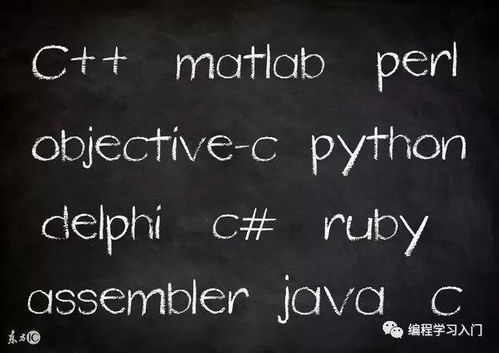 C++ matlab perl
objective-c python
delphi c# ruby
assembler java c
东方IC
编程学习入门